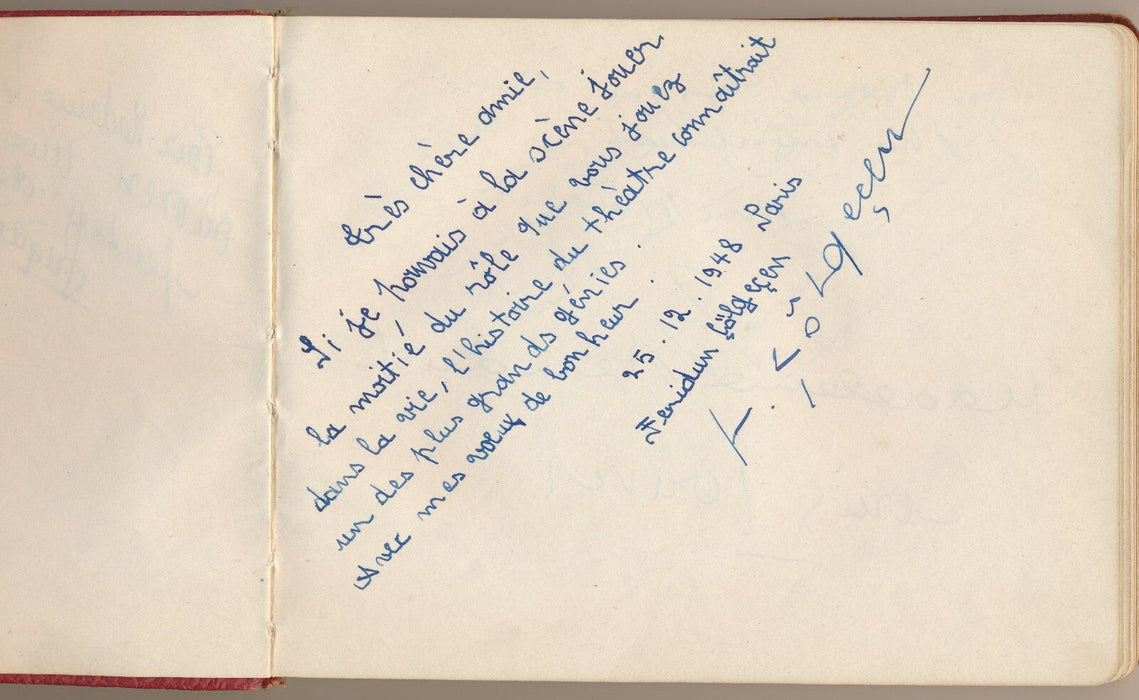 Très chère amie,
Si je pouvais à la scène jouer
la moitié du rôle que vous jouez
dans la vie, l'histoire du théâtre connaîtrait
un des plus grands génies.
Avec mes vœux de bonheur.
25.12.1948 Paris
Feridun Çölgeçen
F. Çölgeçen